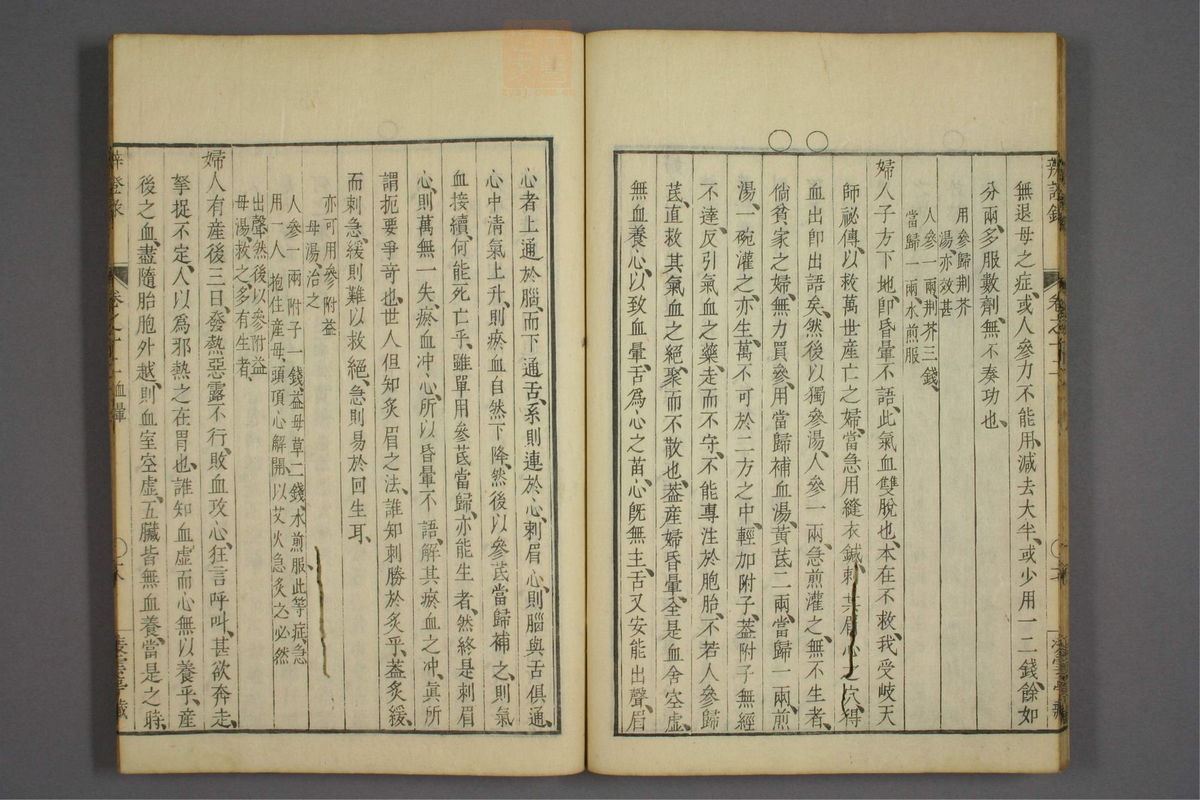 辨證錄
無退母之症或人參力不能用減去大半或少用一二錢餘如
分兩多服數劑無不奏功也
用參歸荆芥
湯亦效甚
人參一兩荆芥三錢
當歸一兩水煎服
婦人子方下地卽昏暈不語此氣血雙脫也本在不救我受岐天
師祕傳以救萬世產亡之婦當急用縫衣鍼刺其眉心之穴得
血出卽出語矣然後以獨參湯人參一兩急煎灌之無不生者
倘貧家之婦無力買參用當歸補血湯黃茋二兩當歸一兩煎
湯一碗灌之亦生萬不可於二方之中輕加附子葢附子無經
不達反引氣血之藥走而不守不能專注於胞胎不若人參歸
茋直救其氣血之絕聚而不散也葢產婦昏暈全是血舍空虛
無血養心以致血暈舌爲心之苗心旣無主舌又安能出聲眉
心者上通於腦而下通舌系則連於心刺眉心則腦與舌俱通
心中淸氣上升則瘀血自然下降然後以參茋當歸補之則氣
血接續何能死亡乎雖單用參茋當歸亦能生者然終是刺眉
心則萬無一失瘀血冲心所以昏暈不語解其瘀血之冲眞所
謂扼要爭奇也世人但知灸眉之法誰知刺勝於灸乎葢灸緩
而刺急緩則難以救絕急則易於回生耳
亦可用參附益
母湯治之
人參一兩附子一錢益母草二錢水煎服此等症急
用一人抱住產母頭頂心解開以艾火急灸之必然
出聲然後以參附益
母湯救之多有生者
婦人有產後三日發熱惡露不行敗血攻心狂言呼叫甚欲奔走
拏捉不定人以爲邪熱之在胃也誰知血虛而心無以養乎產
後之血盡隨胎胞外越則血室空虛五臟皆無血養當是之時